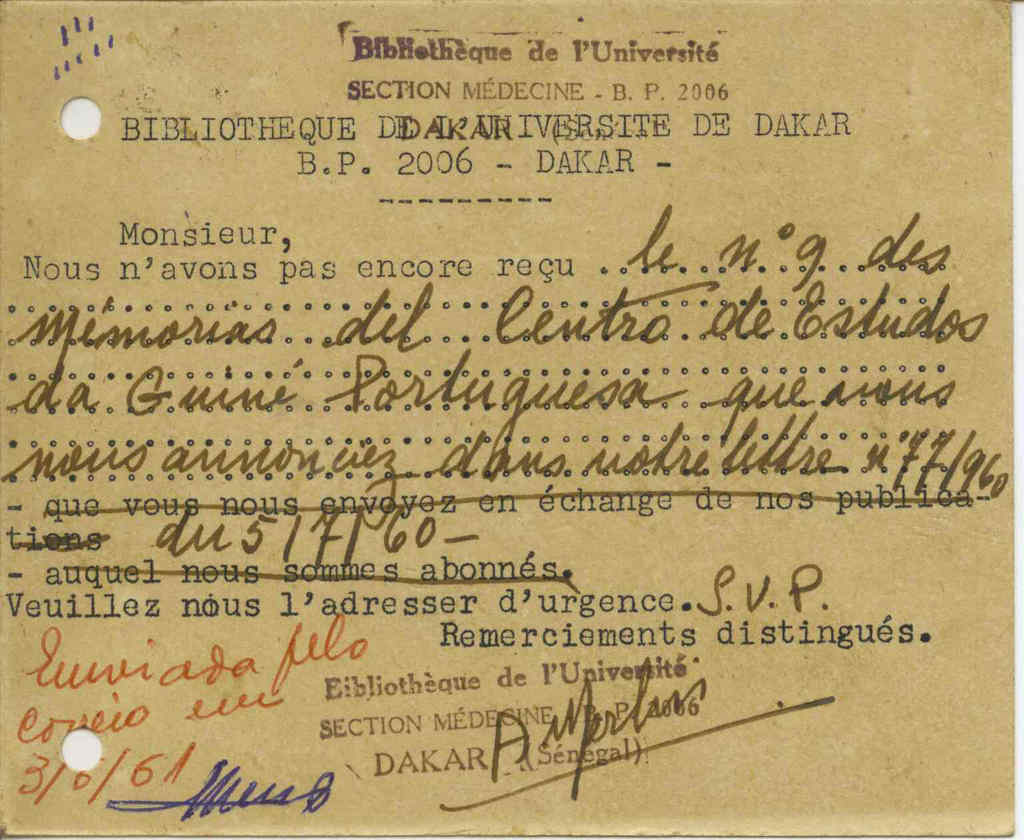 Bibliothèque de l'Université
SECTION MÉDECINE - B. P. 2006
DAKAR
BIBLIOTHEQUE DE L'UNIVERSITE DE DAKAR
B.P. 2006 - DAKAR -
Monsieur,
Nous n'avons pas encore reçu le n° 9 des
Mémorias del Centro de Estudos
da Guiné Portuguesa que vous
nous annonciez dans votre lettre n° 77/960
- que vous nous envoyez en échange de nos publica-
tions du 5/7/60-
- auquel nous sommes abonnés.
Veuillez nous l'adresser d'urgence. S.V.P.
Remerciements distingués.
Enviada pelo
correio em
3/6/61
Bibliothèque de l'Université
SECTION MÉDECINE B. P. 2006
DAKAR (Sénégal)